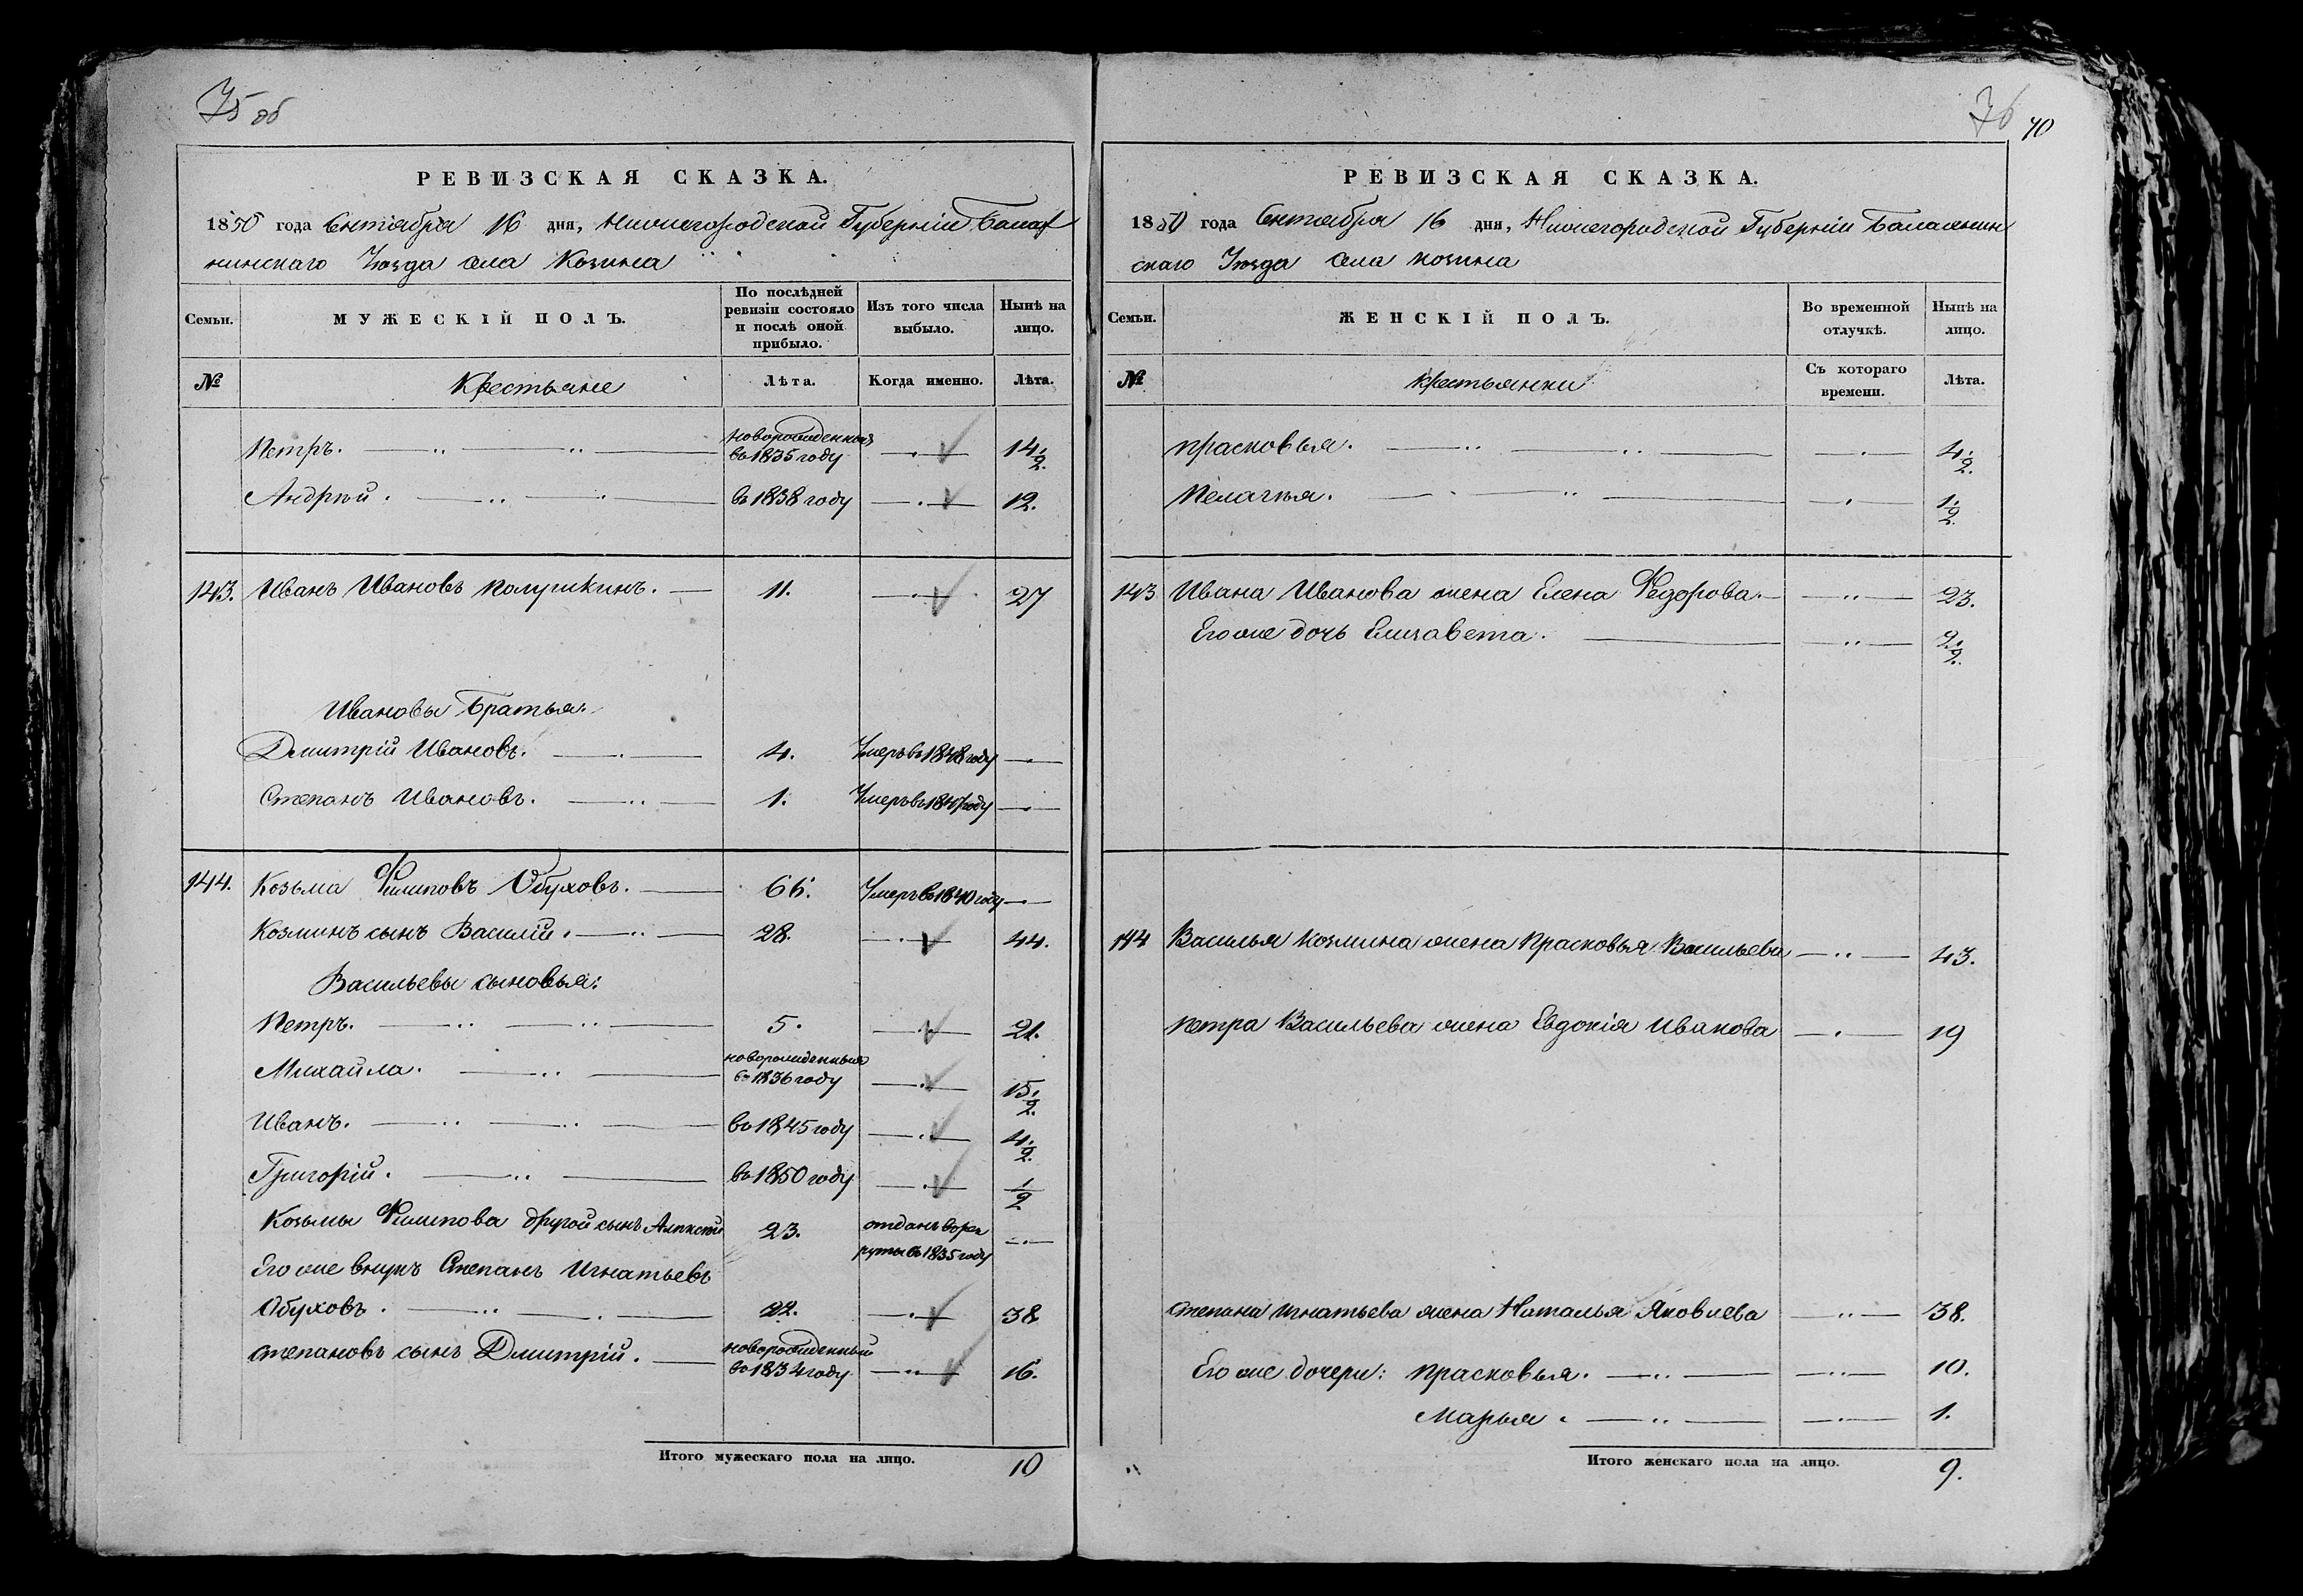 75 об
РЕВИЗСКАЯ СКАЗКА.
1850 года Сентября 16 дня, Нижегородской Губерніи Балах
нинскаго Уѣзда села Козина
Семьи.
МУЖЕСКІЙ ПОЛЪ.
По послѣдней ревизіи состояло и послѣ оной прибыло.
Изъ того числа выбыло.
Нынѣ на лицо.
№
Крестьяне
Лѣта.
Когда именно.
Лѣта.
Петръ. новорожденный въ 1835 году 14 1/2.
Андрѣй. въ 1838 году 12.
143. Иванъ Ивановъ Полушкинъ. 11. 27
Ивановы Братья:
Дмитрій Ивановъ. 4. Умеръ въ 1848 году
Степанъ Ивановъ. 1. Умеръ въ 1847 году
144. Козьма Филиповъ Обуховъ. 66. Умеръ въ 1840 году
Козминъ сынъ Василій. 28. 44.
Васильевы сыновья:
Петръ. 5. 21.
Михайла. новорожденныя въ 1836 году 15 1/2.
Иванъ. въ 1845 году 4 1/2.
Григорій. въ 1850 году 1/2
Козьмы Филипова другой сынъ Алексѣй 23. отданъ в рек
руты въ 1835 году
Его же внукъ Степанъ Игнатьевъ
Обуховъ. 22. 38
степановъ сынъ Дмитрій. новорожденный въ 1834 году 16.
Итого мужескаго пола на лицо. 10
76
70
РЕВИЗСКАЯ СКАЗКА.
1850 года Сентября 16 дня, Нижегородской Губерніи Балахнин
скаго Уѣзда села козина
Семьи.
ЖЕНСКІЙ ПОЛЪ.
Во временной отлучкѣ.
Нынѣ на лицо.
№
крестьянки
Съ котораго времени.
Лѣта.
прасковья. 4 1/2.
Пелагья. 1/2.
143 Ивана Иванова жена Елена Федорова. 23.
Его же дочь Елизавета. 2 1/2.
144 Василья козмина жена Прасковья Васильева 43.
петра Васильева жена Евдокія Иванова 19
степана игнатьева жена Наталья Яковлева 38.
Его же дочери: прасковья. 10.
Марья. 1.
Итого женскаго пола на лицо. 9.